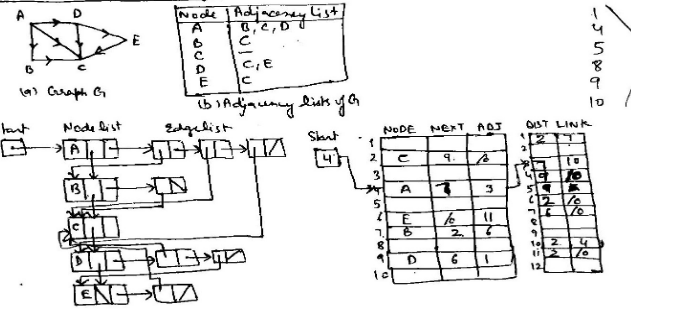 A D
E
B C
(a) Graph G
Node Adjacency List
A B, C, D
B C
C —
D C, E
E C
(b) Adjacency lists of G
1
4
5
8
9
10
Node list Edge list
A
B
C
D
E
Start
4
NODE NEXT ADJ
1
2 C 9
3
4 A 3
5
6 E 11
7 B 2 6
8
9 D 6 1
DIST LINK
1 2 7
2
10
4 9
5 9
6 2
7 6
8
9
10 2 4
11 2
12